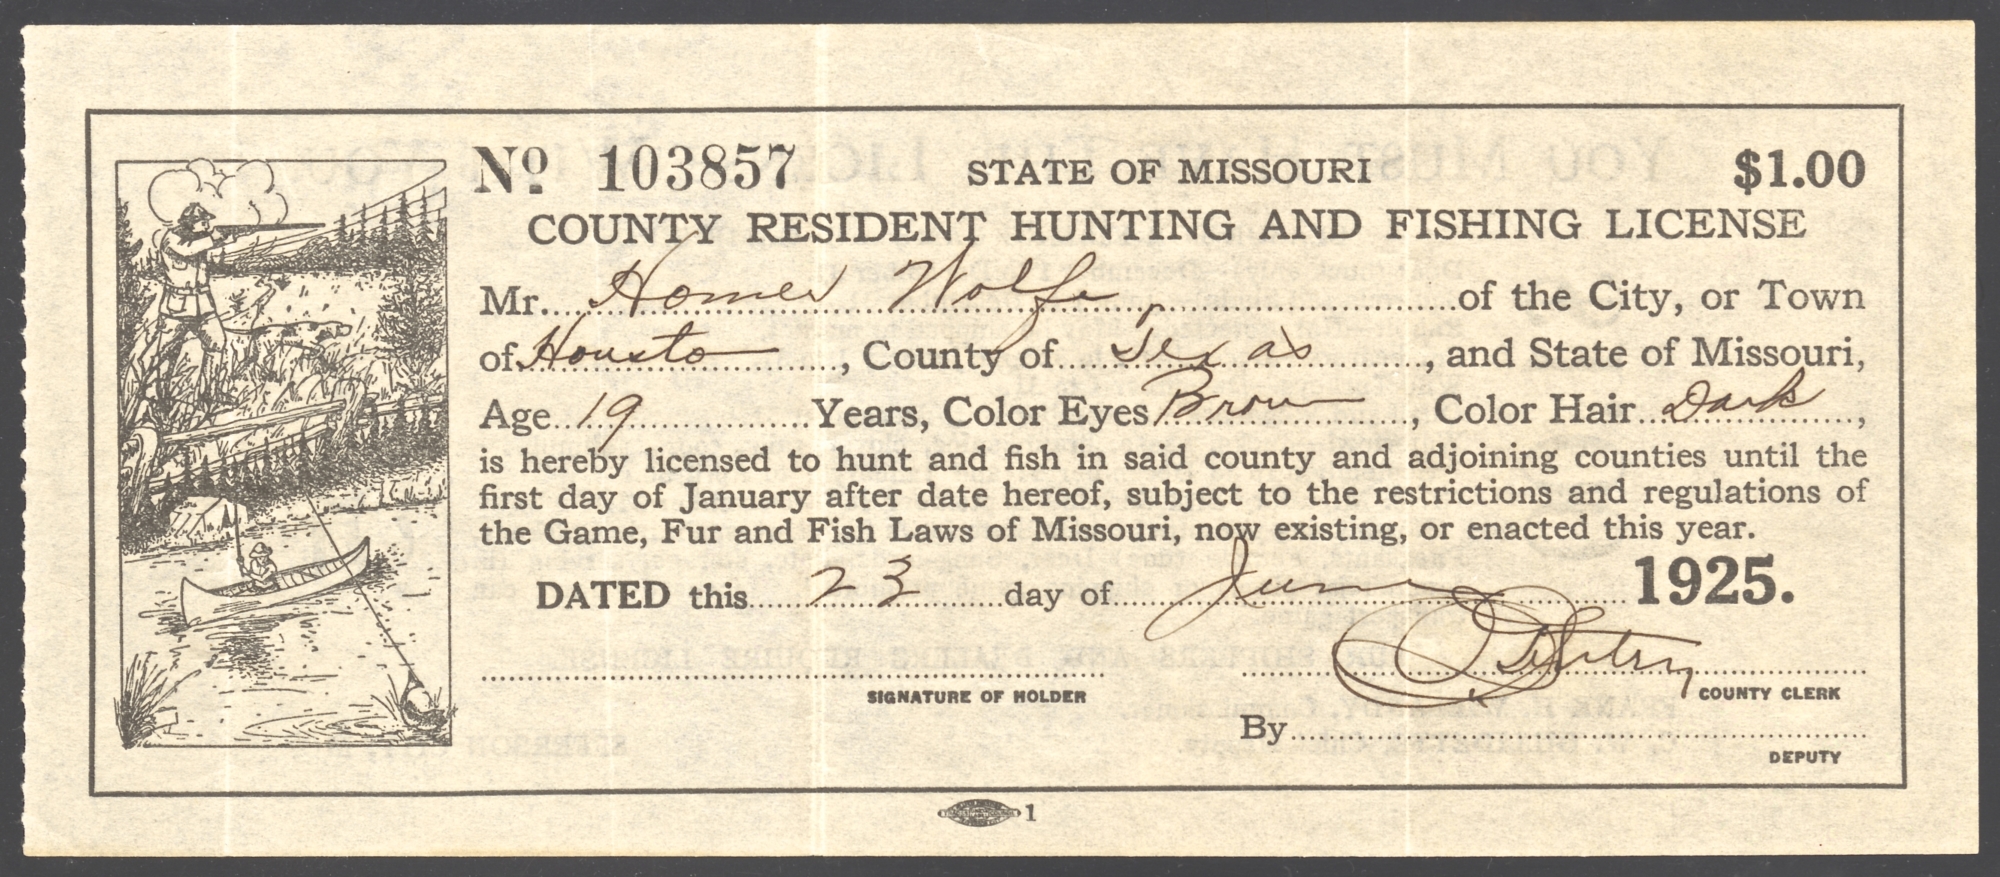 No 103857 STATE OF MISSOURI $1.00
COUNTY RESIDENT HUNTING AND FISHING LICENSE
Mr. Homer Wolfe of the City, or Town
of Housto, County of Texas, and State of Missouri,
Age 19 Years, Color Eyes Brown, Color Hair Dark,
is hereby licensed to hunt and fish in said county and adjoining counties until the
first day of January after date hereof, subject to the restrictions and regulations of
the Game, Fur and Fish Laws of Missouri, now existing, or enacted this year.
DATED this 23 day of June 1925.
SIGNATURE OF HOLDER COUNTY CLERK
By
DEPUTY
1